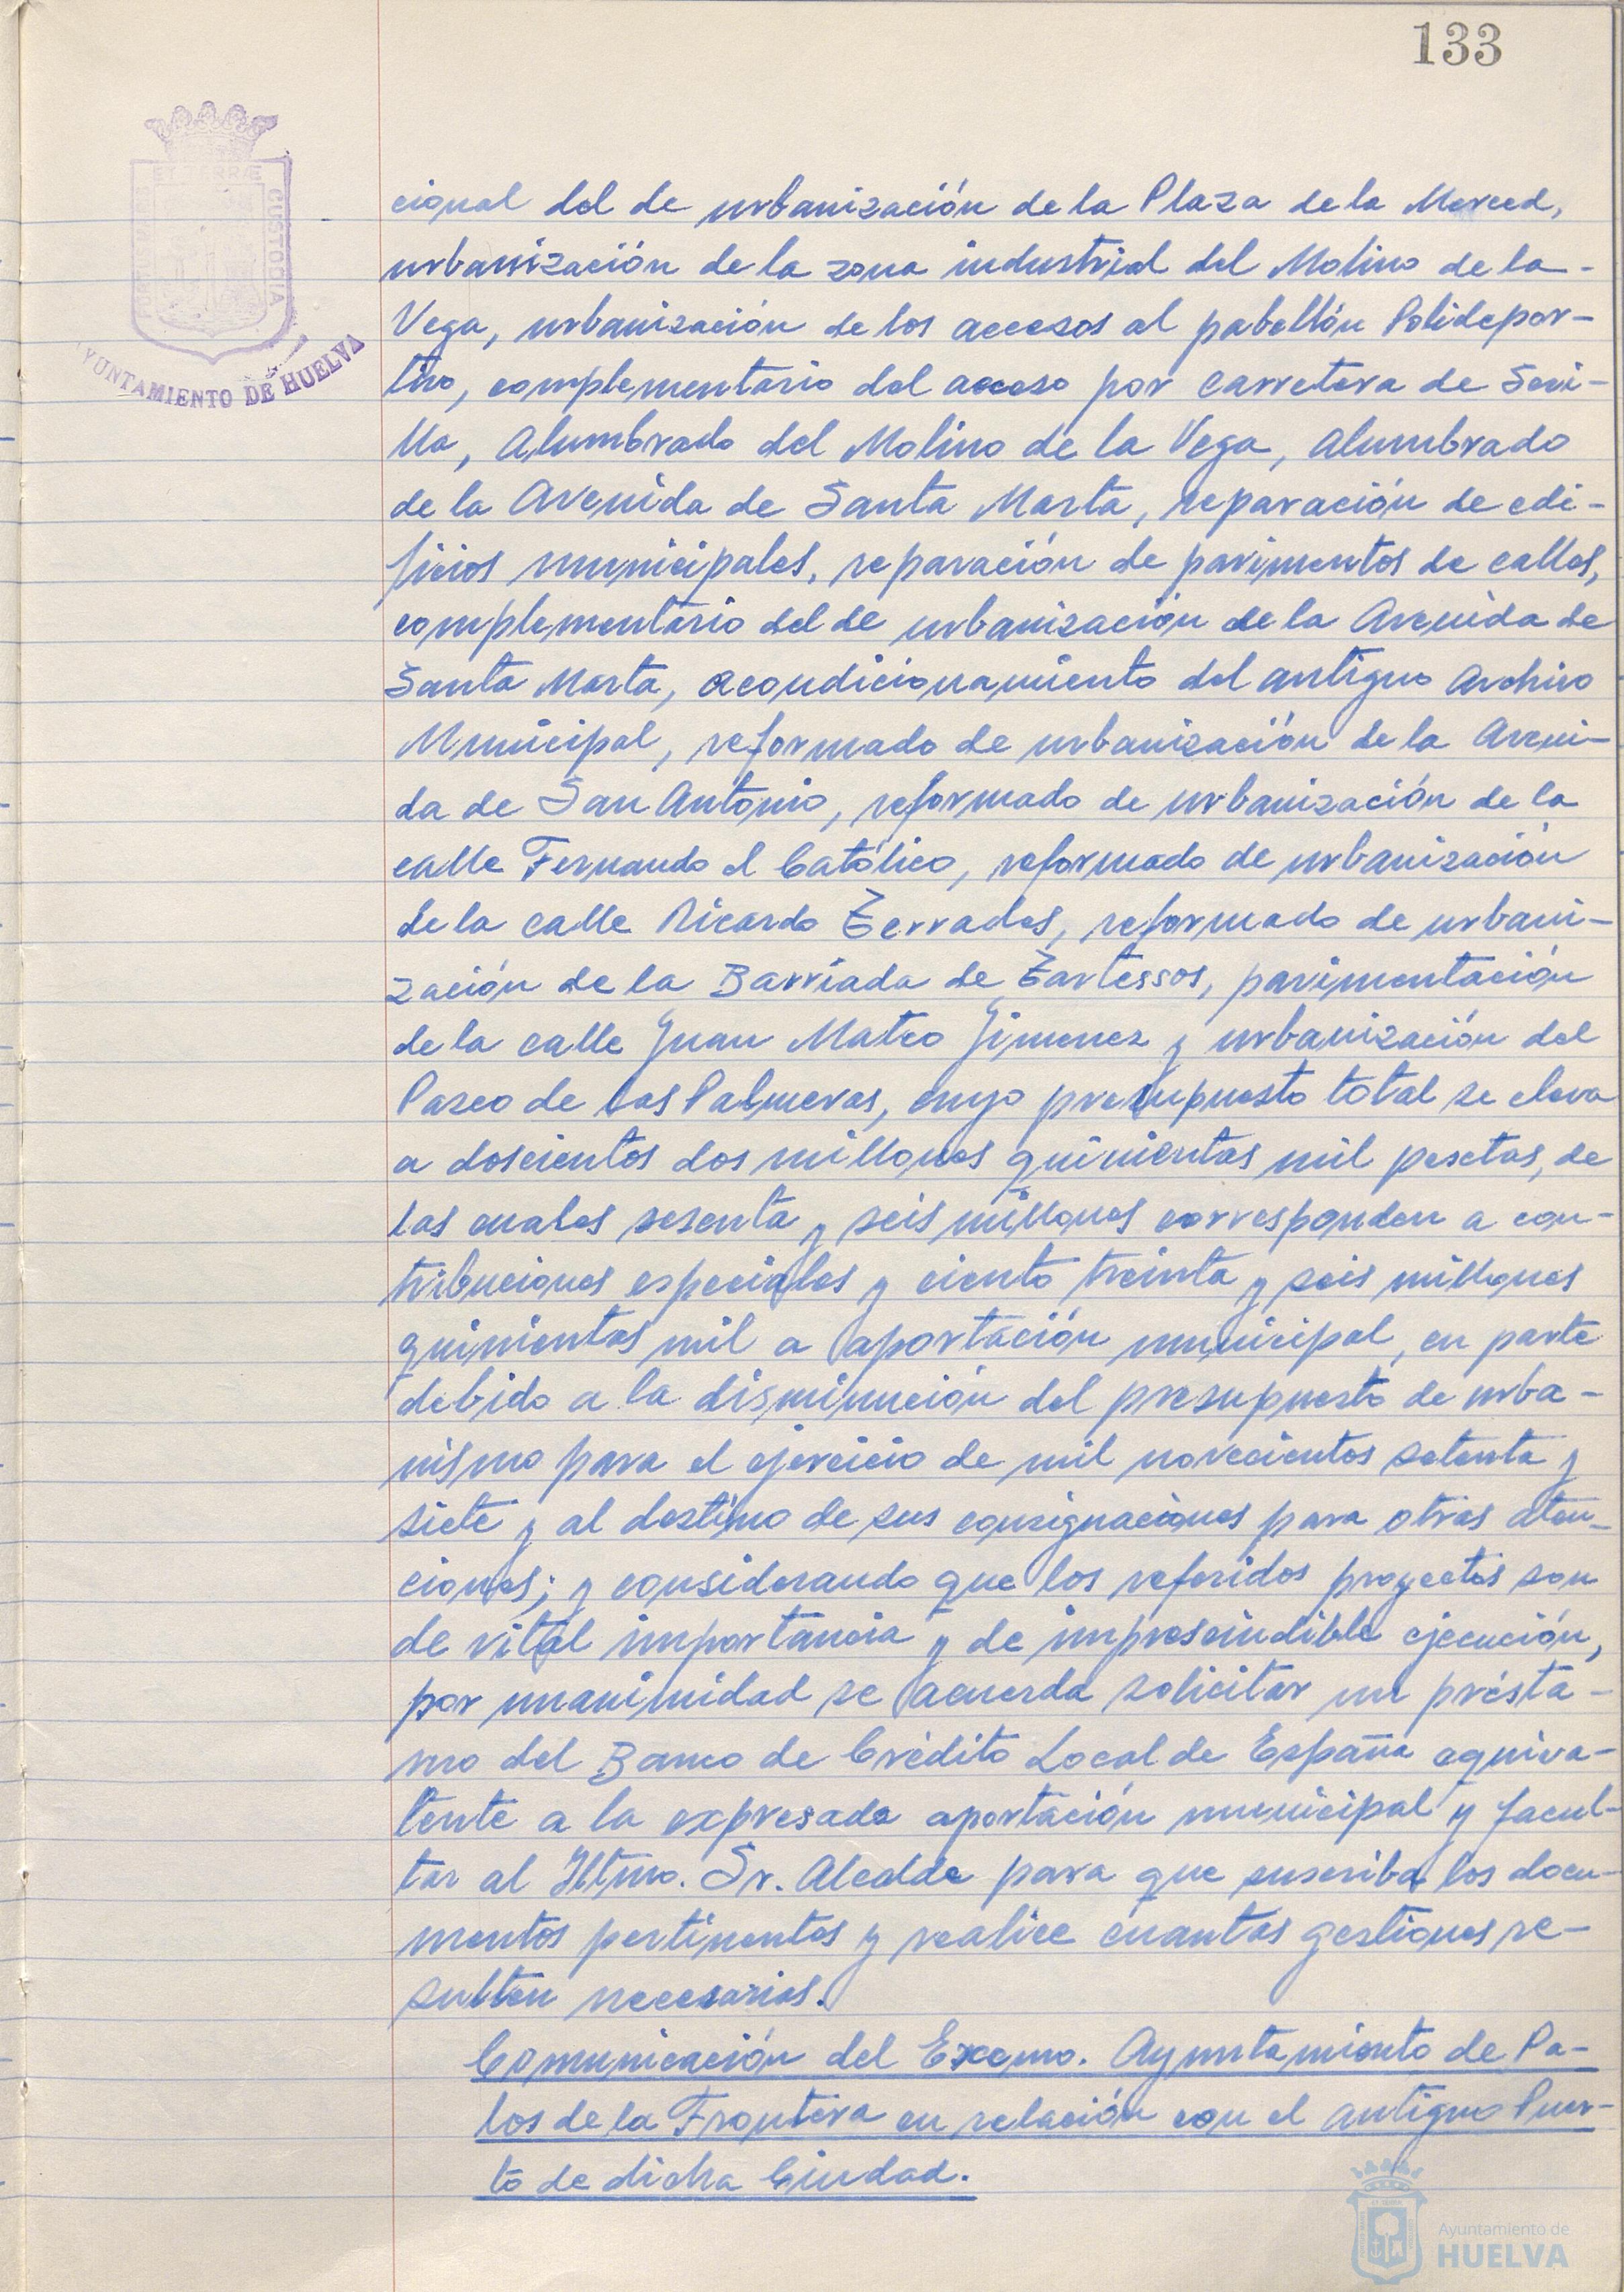 133
PORTUS MARIS
ET TERRÆ
CUSTODIA
AYUNTAMIENTO DE HUELVA
cional del de urbanización de la Plaza de la Merced,
urbanización de la zona industrial del Molino de la-
Vega, urbanización de los accesos al pabellón Polidepor-
tivo, complementario del acceso por carretera de Sevi-
lla, Alumbrado del Molino de la Vega, Alumbrado
de la Avenida de Santa Marta, reparación de edi-
ficios municipales, reparación de pavimentos de calles,
complementario del de urbanización de la Avenida de
Santa Marta, acondicionamiento del antiguo Archivo
Municipal, reformado de urbanización de la Aveni-
da de San Antonio, reformado de urbanización de la
calle Fernando el Católico, reformado de urbanización
de la calle Ricardo Terrades, reformado de urbani-
zación de la Barriada de Tartessos, pavimentación
de la calle Juan Mateo Jimenez y urbanización del
Paseo de las Palmeras, cuyo presupuesto total se eleva
a doscientos dos millones quinientas mil pesetas, de
las cuales sesenta y seis millones corresponden a con-
tribuciones especiales y ciento treinta y seis millones
quinientas mil a aportación municipal, en parte
debido a la disminución del presupuesto de urba-
nismo para el ejercicio de mil novecientos setenta y
siete y al destino de sus consignaciones para otras aten-
ciones; y considerando que los referidos proyectos son
de vital importancia y de imprescindible ejecución,
por unanimidad se acuerda solicitar un présta-
mo del Banco de Crédito Local de España equiva-
lente a la expresada aportación municipal y facul-
tar al Iltmo. Sr. Alcalde para que suscriba los docu-
mentos pertinentes y realice cuantas gestiones re-
sulten necesarias.
Comunicación del Excmo. Ayuntamiento de Pa-
los de la Frontera en relación con el antiguo Puer-
to de dicha Ciudad.
Ayuntamiento de
HUELVA